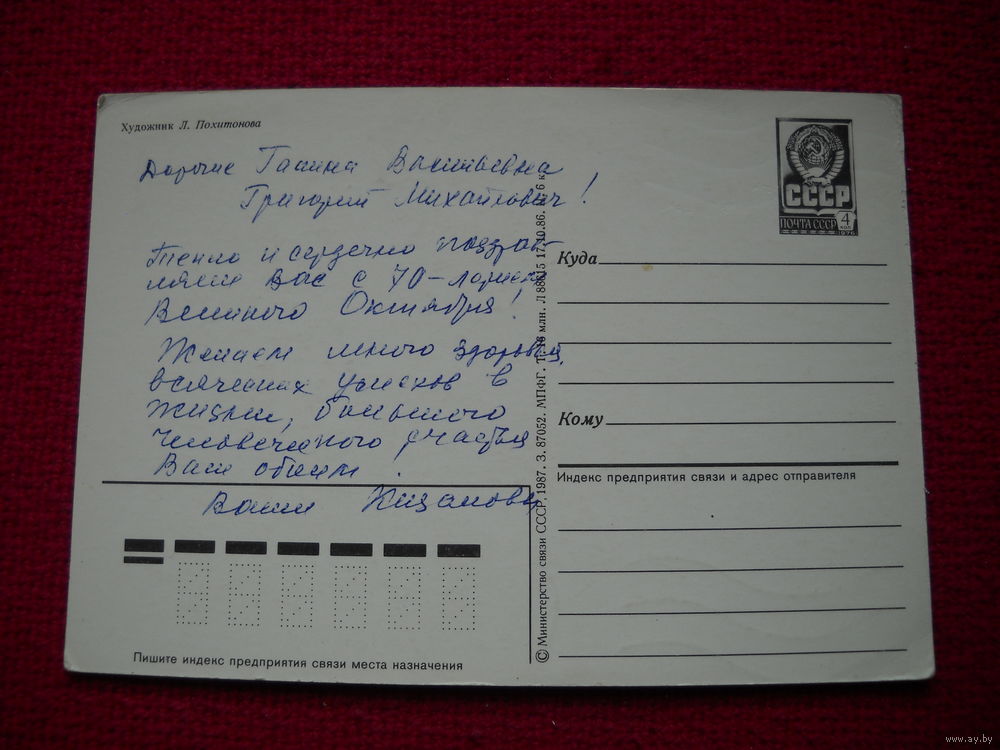 Художник Л. Похитонова
Дорогие Галина Васильевна
Григорий Михайлович!
Тепло и сердечно поздрав-
ляем Вас с 70-летием
Великого Октября!
Желаем много здоровья,
всяческих успехов в
жизни, большого
человеческого счастья
Вам обоим.
Ваши
Пишите индекс предприятия связи места назначения
© Министерство связи СССР, 1987. З. 87052. МПФГ. Т. 16 млн. Л 88815 17.10.86. Ц. 6 к.
СССР
ПОЧТА СССР
4
КОП
1976
Куда
Кому
Индекс предприятия связи и адрес отправителя
www.ay.by